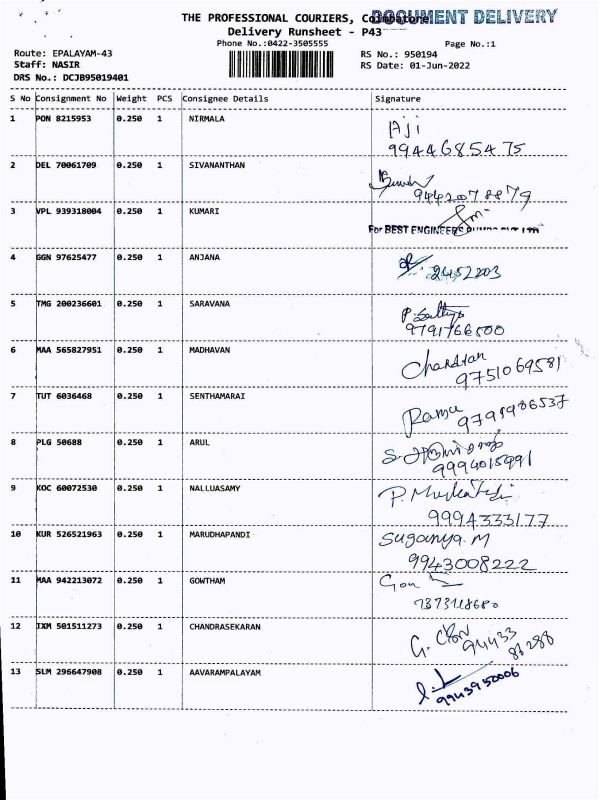 THE PROFESSIONAL COURIERS, Coimbatore
DOCUMENT DELIVERY
Delivery Runsheet - P43
Phone No.:0422-3505555
Page No.:1
Route: EPALAYAM-43
RS No.: 950194
Staff: NASIR
RS Date: 01-Jun-2022
DRS No.: DCJB95019401
S No Consignment No Weight PCS Consignee Details Signature
1 PON 8215953 0.250 1 NIRMALA Aji
9944685475
2 DEL 70061709 0.250 1 SIVANANTHAN
9442078879
3 VPL 939318004 0.250 1 KUMARI
For BEST ENGINEERS
4 GGN 97625477 0.250 1 ANJANA 2452203
5 TMG 200236601 0.250 1 SARAVANA
9791766500
6 MAA 565827951 0.250 1 MADHAVAN Chandran
9751069581
7 TUT 6036468 0.250 1 SENTHAMARAI Ramu
8 PLG 50688 0.250 1 ARUL
9994015991
9 KOC 60072530 0.250 1 NALLUASAMY
9994333177
10 KUR 526521963 0.250 1 MARUDHAPANDI Suganya.M
9943008222
11 MAA 942213072 0.250 1 GOWTHAM
12 IXM 501511273 0.250 1 CHANDRASEKARAN
94433
86288
13 SLM 296647908 0.250 1 AAVARAMPALAYAM
9943950006